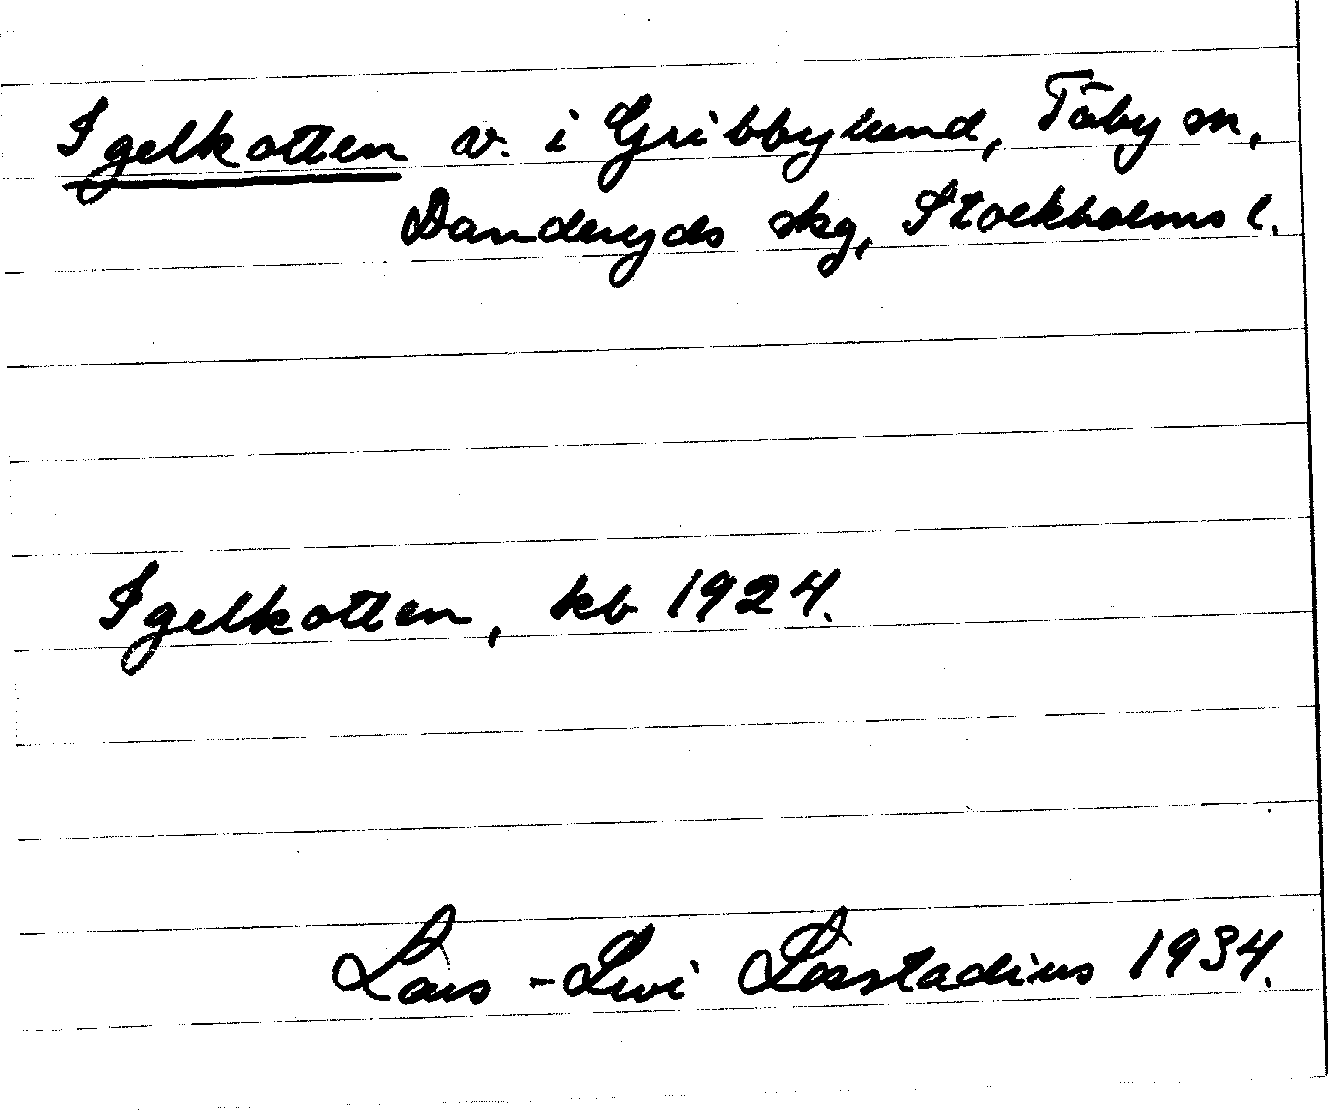 Igelkotten v. i Gribbylund, Täby sn,
Danderyds skg, Stockholms l.
Igelkotten, kb 1924.
Lars-Levi Læstadius 1934.